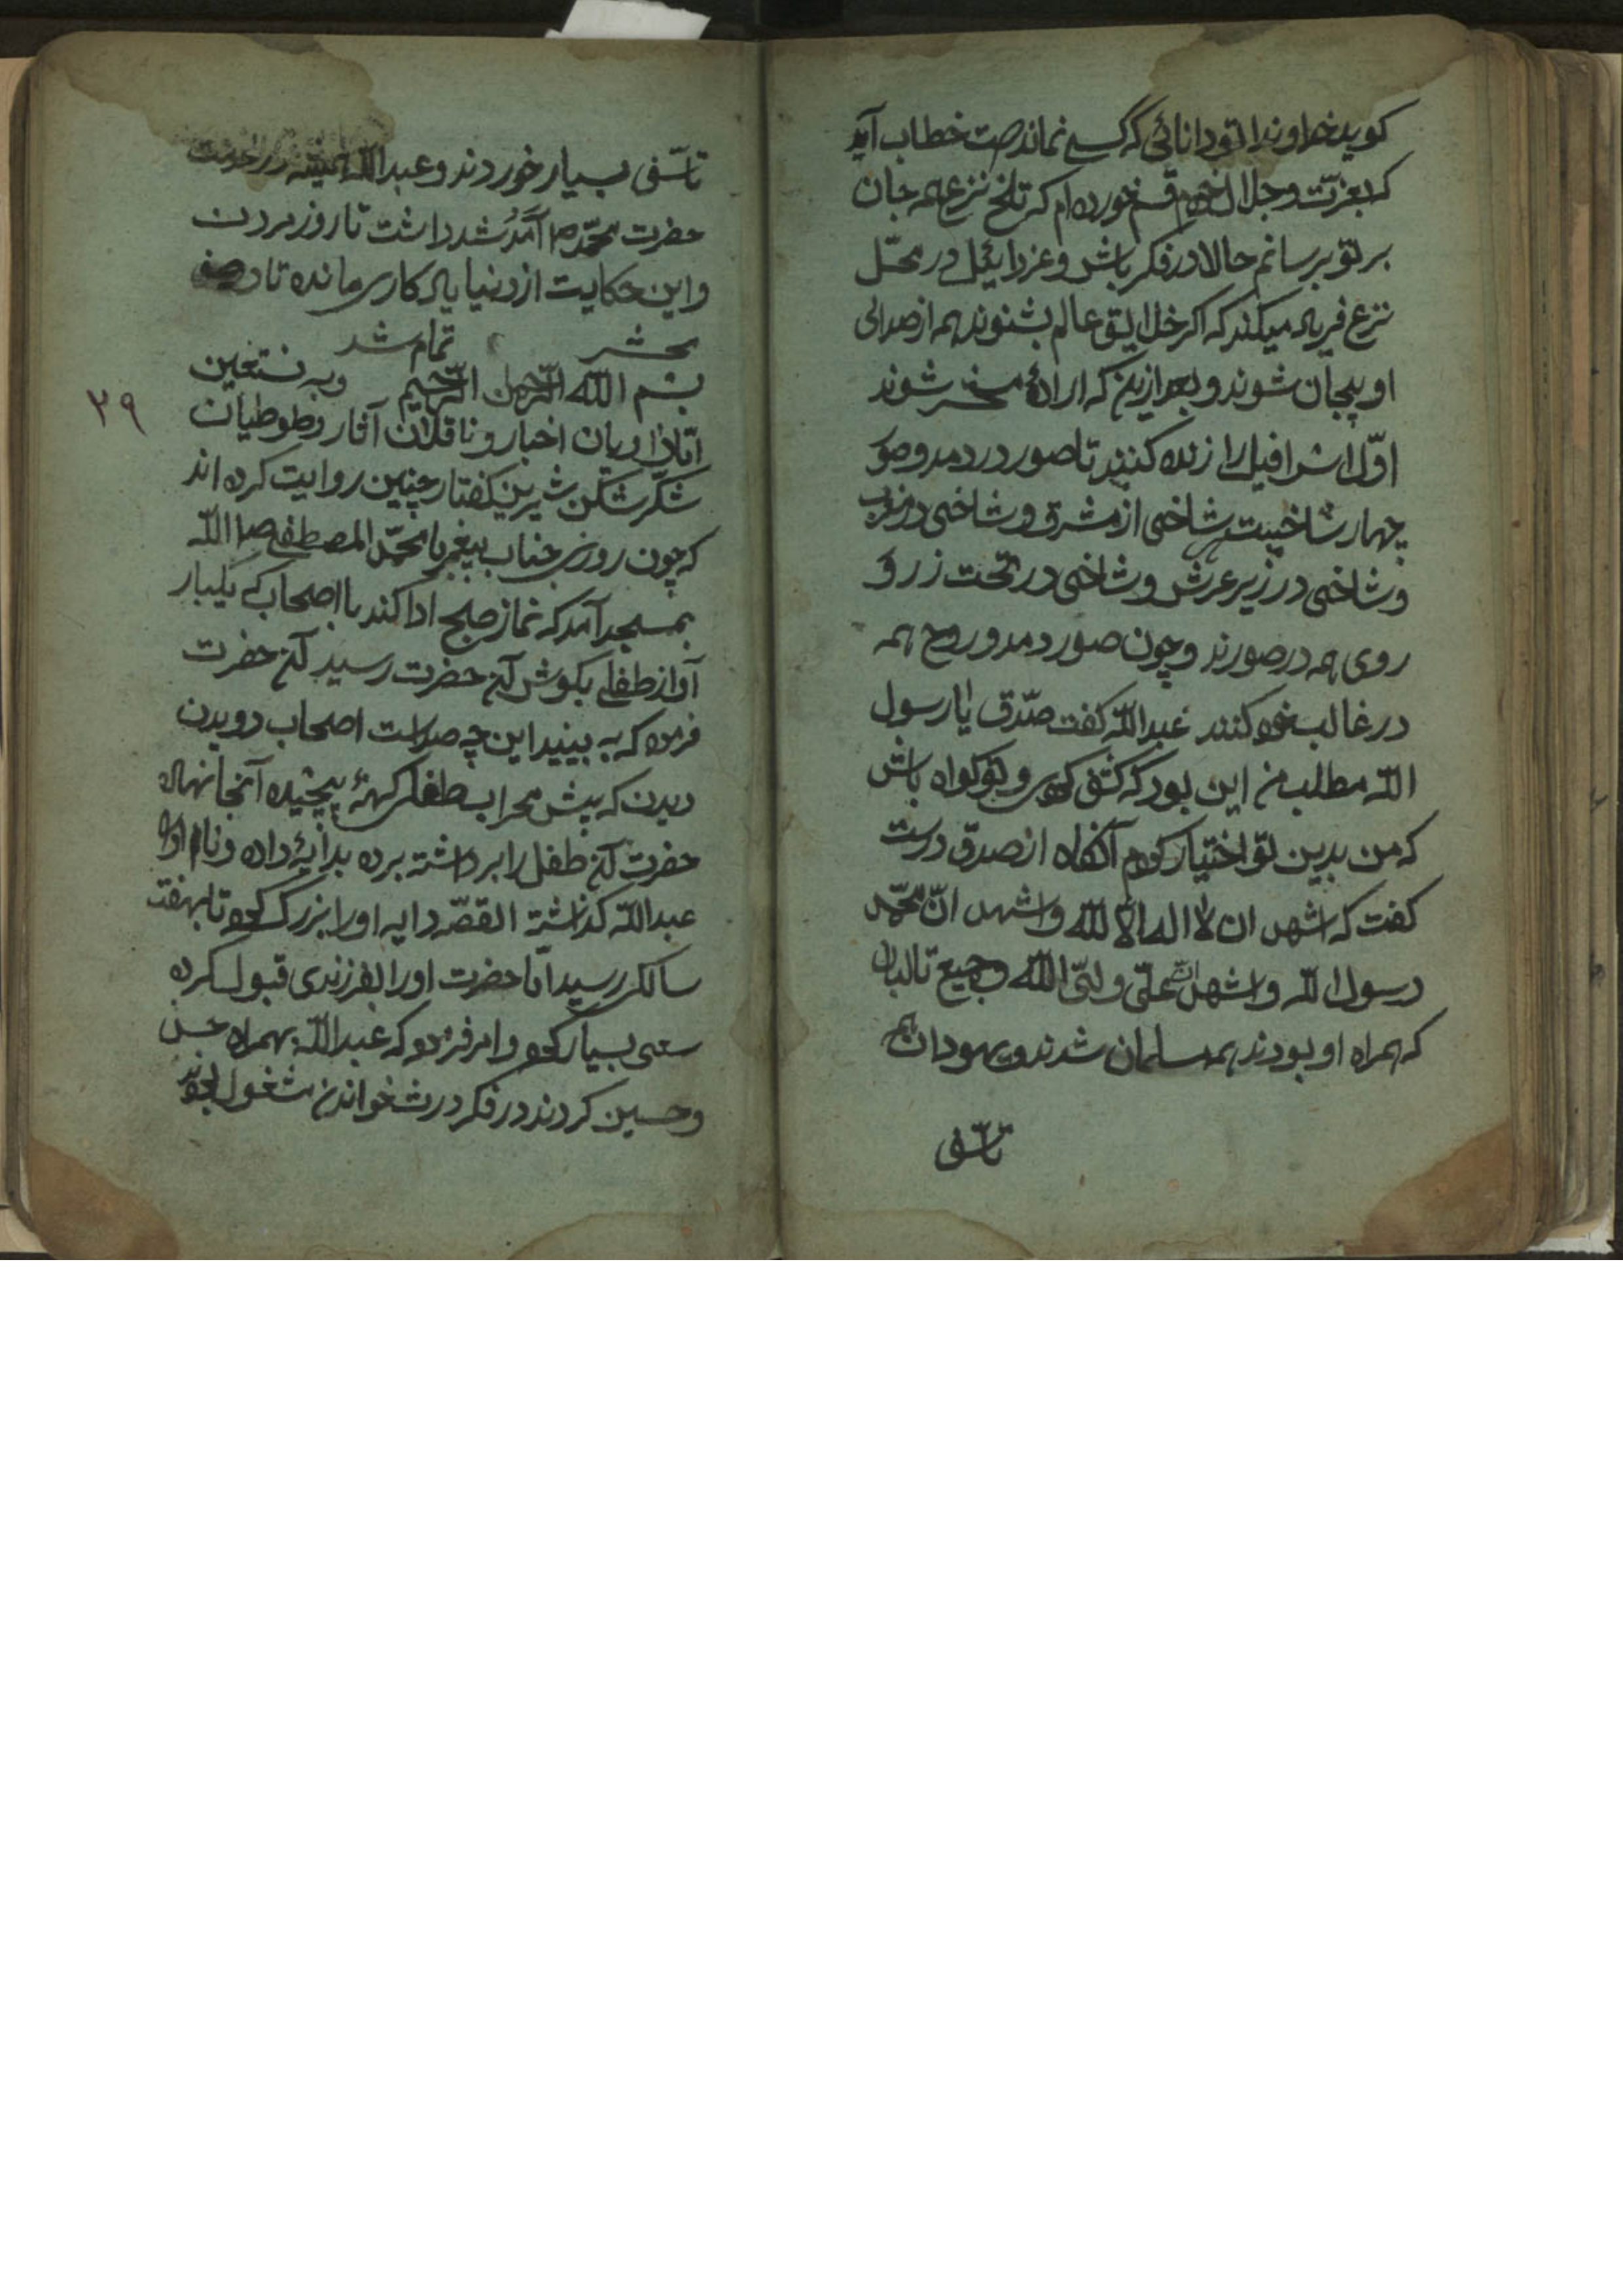 کوید خداوندا تو دانائی که کسے نمانده‌ست خطاب آید
که بعزت و جلال خودم قسم خورده ام که تلخ نزع همه جان
بر تو برسانم حالا در فکر باش و عزرائیل در محل
نزع فریاد میکند که اکر خلایق عالم بشنوند همه از صدای
او بیجان شوند و بعد ازین که اراده محشر شوند
اوّل اسرافیل را زنده کنند تا صور در دمد و صور
چهار شاخیست شاخی از مشرق و شاخی در مغرب
و شاخی در زیر عرش و شاخی در تحت زر و
روی همه در صورند و چون صور دمد و روح همه
در غالب خود کنند عبدالله کفت صدّق یا رسول
الله مطلب من این بود که کشف کردی و تو کواه باش
که من بدین تو اختیار کردم آنکاه از صدق درست
کفت که اشهد ان لا اله الا الله و اشهد انّ محمّد
رسول الله و اشهد انّ علیّ ولیّ الله و جمیع تالبان
که همراه او بودند همه مسلمان شدند و یهودان هم
تاسّفی
تاسّفی بسیار خوردند و عبدالله همیشه در خدمت
حضرت محمّد ص آمد شد داشت تا روز مردن
و این حکایت از دنیا یادکاری مانده تا در صف
محشر تمام شد
بسم الله الرحمن الرحیم وبه نستعین
۳۹
امّا راویان اخبار و ناقلان آثار و طوطیان
شکّر شکن شیرین کفتار چنین روایت کرده اند
که چون روزی جناب پیغمبر ما محمّد المصطفے ص الله
بمسجد آمد که نماز صبح ادا کند با اصحاب که یکبار
آواز طفلے بکوش آن حضرت رسید آن حضرت
فرمود که به بینید این چه صداست اصحاب دویدن
دیدن که پیش محراب طفلی کهنهٔ پیچیده آنجا نهاده
حضرت آن طفل را برداشته برده بدایهٔ داده و نام او را
عبدالله کذاشته القصّه دایه او را بزرک کرد تا بهفت
سالکی رسید امّا حضرت او را بفرزندی قبول کرده
سعی بسیار کرد و امر فرمود که عبدالله بهمراه حسن
و حسین کردند در فکر درس خواندن مشغول بودند